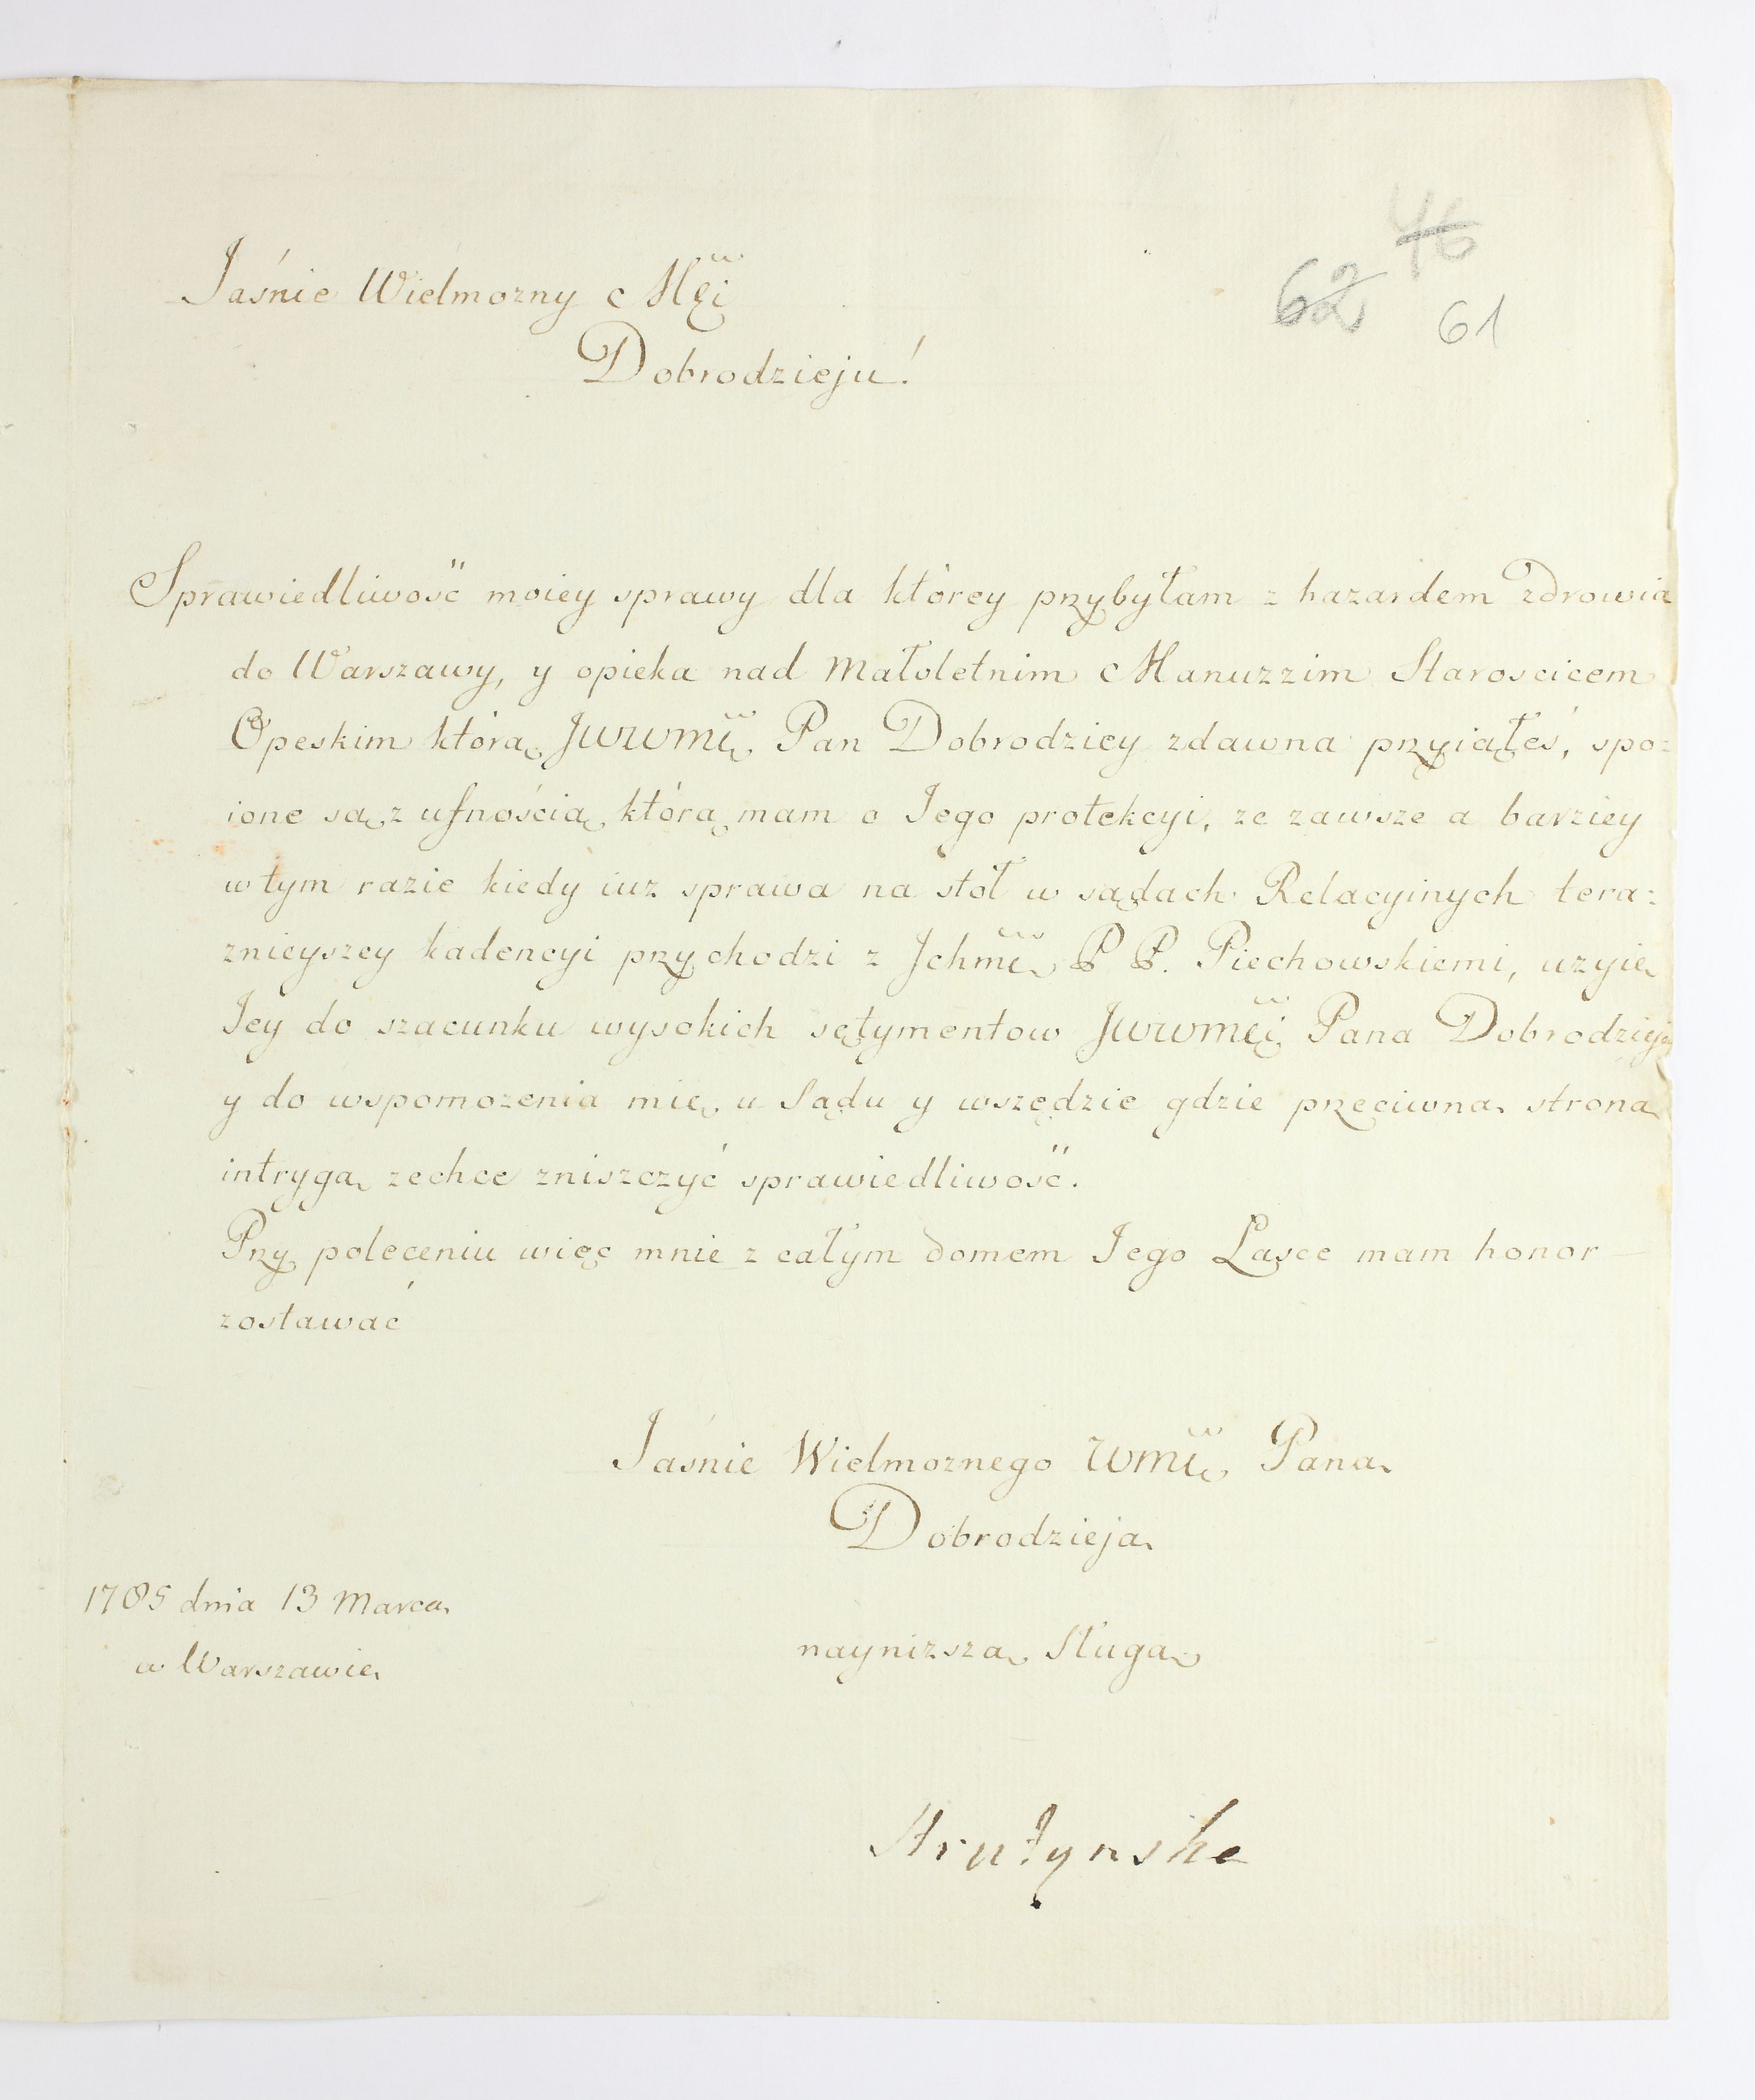 46
62 61
Jaśnie Wielmozny Mći
Dobrodzieju!
Sprawiedliwość moiey sprawy dla którey przybyłam z hazardem zdrowia
do Warszawy, y opieka nad Małoletnim Manuzzim Staroscicem
Opeskim którą JWWMć Pan Dobrodziey zdawna przyiąłeś, spo=
ione są z ufnością którą mam o Jego protekcyi, ze zawsze a barziey
w tym razie kiedy iuz sprawa na stół w sądach Relacyinych tera=
znieyszey kadencyi przychodzi z Jchmć P P. Piechowskiemi, uzyie
Jey do szacunku wysokich sętymentow JWWMći Pana Dobrodzieja
y do wspomozenia mię u Sądu y wszędzie gdzie przeciwna strona
intrygą zechce zniszczyć sprawiedliwość.
Przy poleceniu więc mnie z całym domem Jego Łasce mam honor
zostawać
Jaśnie Wielmoznego WMć Pana
Dobrodzieja
1785 dnia 13 Marca
w Warszawie
naynizsza Sługa
Strutynska